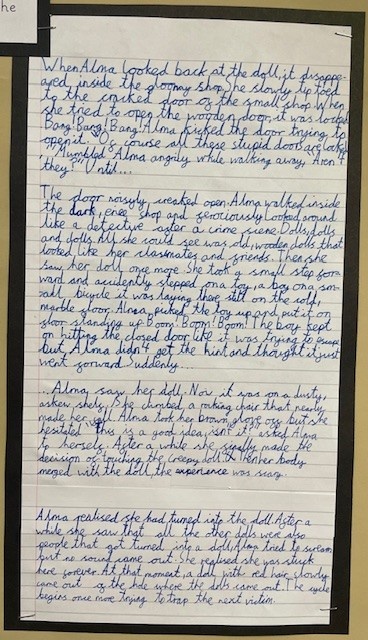 he
When Alma looked back at the doll, it disappe-
ared inside the gloomy shop. She slowly tip toed
to the cracked door of the small shop. When
she tried to open the wooden door, it was locked
Bang! Bang! Bang! Alma kicked the door trying to
open it. "Of course all these stupid doors are locked
," Mumbled Alma angrily while walking away. "Aren't
they?" Until....
The door noisily creaked open. Alma walked inside
the dark, shop and ferociously looked around
like a detective after a crime scene. Dolls, dolls
and dolls. All she could see was old, wooden dolls that
looked like her classmates and friends. Then she
saw her doll once more. She took a small step for-
ward and accidently stepped on a toy, a boy on a sm-
all bicycle it was laying there still on the cold,
marble floor. Alma picked the toy up and put it on
floor standing up. Boom! Boom! Boom! The boy kept
on hitting the closed door like it was trying to escape
but Alma didn't get the hint and thought it just
went forward. Suddenly....
Alma saw her doll. Now it was on a dusty,
askew shelf. She climbed a rocking chair that nearly
made her Alma took her brown glove off but she
hesitated "This is a good idea, isn't it" asked Alma
to herself. After a while she finally made the
decision of touching the creepy doll. Then her body
merged with the doll, the experience was scary.
Alma realised she had turned into the doll. After a
while she saw that all the other dolls were also
people that got turned into a doll. Alma tried to scream
but no sound came out. She realised she was stuck
here forever. At that moment, a doll with red hair slowly
came out of the hole where the dolls came out. The cycle
begins once more trying to trap the next victim.